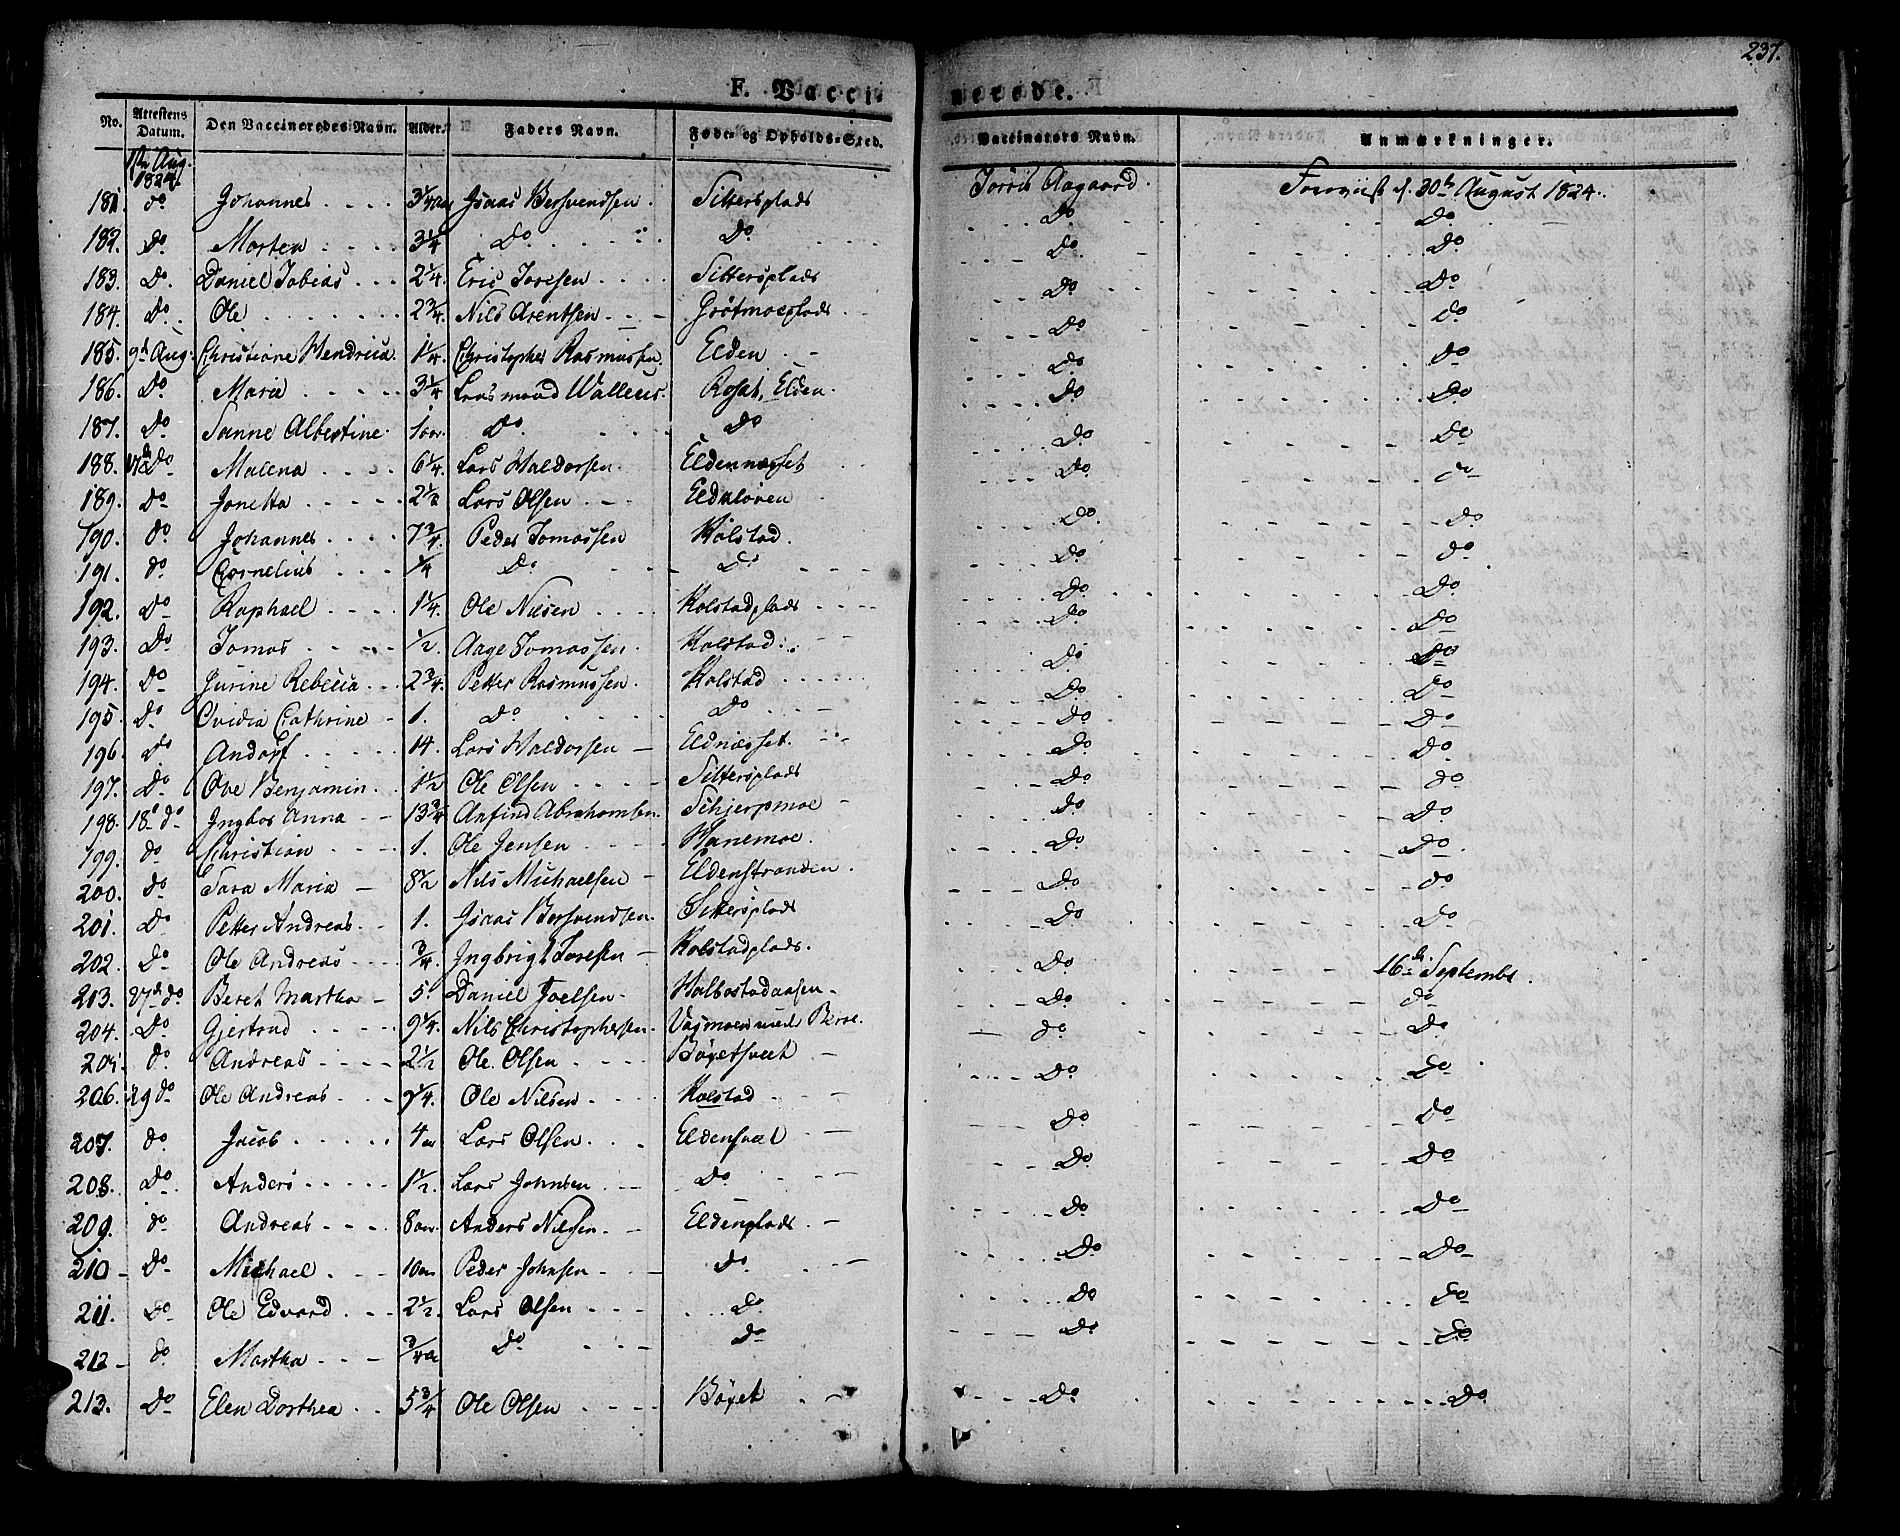 237.
F. Vaccinerede.
No. Attestens Datum. Den Vaccineredes Navn. Alder. Faders Navn. Føde- og Opholds-Sted. Vaccinators Navn. Anmærkninger.
Aug. 1824.
181. do Johannes 3 1/4 Isaac Bersvendsen. Sittersplads Aagaard. d. 30te August 1824.
182. Do Morten 3 1/4 Do Do Do Do
183. Do. Daniel Tobias 2 1/4. Eric Toresen Sittersplads Do Do
184. Do. Ole 2 3/4. Nils Arentsen Grötmoeplads Do Do
185. 9d Aug. Christiane Hendrica. 1 1/4. Christopher Rasmussen. Elden Do do
186. Do. Maria 3 1/4 Elden. Do do
187. Do Sanne Albertine 1 aar. Do Do Do Do
188. 17d Do Malena 6 1/4. Lars Haldorsen. Eldennæsset Do Do
189. Do Jonetta 2 1/2 Lars Olsen Do
190. do Johannes 7 3/4. Peder Tomassen Holstad. Do do
191. do. Cornelius 1/4 Do Do Do do
192. Do Raphael 1 1/4. Ole Nilsen Holstadplads Do Do
193. Do Tomas 1/2. Aage Tomassen. Holstad. Do Do
194. Do Jurine Rebecca 2 3/4. Petter Rasmussen. Holstad Do Do
195. Do Ovidia Cathrine 1. Do Do Do Do
196. Do Andorf 14. Lars Haldorsen Eldnæsset. Do Do
197. Do. Ove Benjamin 1 1/2 Ole Olsen Sittersplads Do Do
198. 18d do Ingbor Anna 13 3/4 Anfind Abrahamsen. Schjerpmoe Do do
199. do Christian 1. Ole Jensen Hanemoe. do Do
200. do Sara Maria 8 1/2 Nils Michaelsen Eldenstranden. Do Do
201. Do Petter Andreas 1. Isaac Bersvendsen. Sittersplads Do do
202. Do Ole Andreas 3/4. Ingbrigt Toresen Holstadplads. Do Do
213. 27d do Beret Martha 5. Daniel Joelsen. Holbostadaasen. Do 16de Septembr.
204. Do Gjertrud 9 1/4. Nils Christophersen. Do do
205. do. Andreas 2 1/2 Ole Olsen do Do
206. 29 do Ole Andreas Ole Nilsen Holstad Do Do
207. do Jacob 4 Lars Olsen Do Do
208. Do. Anders 1 1/2. Lars Johnsen Do Do Do
209. do Andreas 8 aar. Anders Nilsen Eldenplads. Do Do
210 Do Michael 10 Peder Johnsen Do Do Do
211. Do Ole Edvard 2 1/2. Lars Olsen Do Do Do
212 do Martha 3/4 Do Do Do Do
213. Do Elen Dorthea 5 3/4 Ole Olsen Do Do